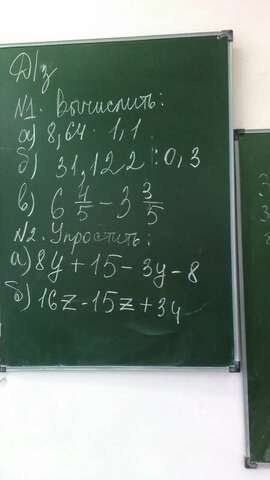 Д/з
№1. Вычислить:
а) 8,64 · 1,1
б) 31,122 : 0,3
в) 6 4/5 - 3 3/5
№2. Упростить:
а) 8y + 15 - 3y - 8
б) 16z - 15z + 34